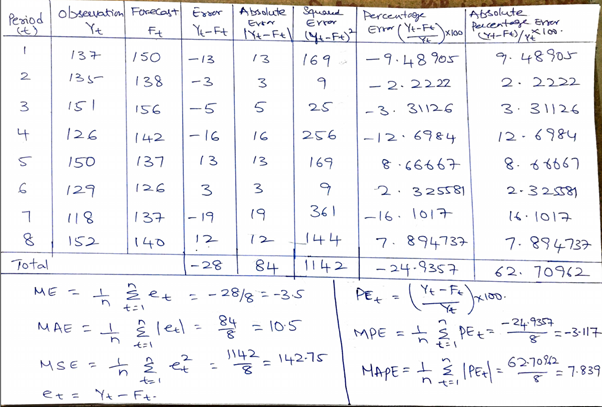 Period (t) Observation Yt Forecast Ft Error Yt-Ft Absolute Error |Yt-Ft| Squared Error (Yt-Ft)² Percentage Error (Yt-Ft/Yt)×100 Absolute Percentage Error |(Yt-Ft)/Yt|×100.
1 137 150 -13 13 169 -9.48905 9.48905
2 135 138 -3 3 9 -2.2222 2.2222
3 151 156 -5 5 25 -3.31126 3.31126
4 126 142 -16 16 256 -12.6984 12.6984
5 150 137 13 13 169 8.66667 8.66667
6 129 126 3 3 9 2.325581 2.325581
7 118 137 -19 19 361 -16.1017 16.1017
8 152 140 12 12 144 7.894737 7.894737
Total -28 84 1142 -24.9357 62.70962
ME = 1/n Σ(t=1 to n) et = -28/8 = -3.5
MAE = 1/n Σ(t=1 to n) |et| = 84/8 = 10.5
MSE = 1/n Σ(t=1 to n) et² = 1142/8 = 142.75
et = Yt-Ft.
PEt = (Yt-Ft/Yt)×100.
MPE = 1/n Σ(t=1 to n) PEt = -24.9357/8 = -3.117
MAPE = 1/n Σ(t=1 to n) |PEt| = 62.70962/8 = 7.839